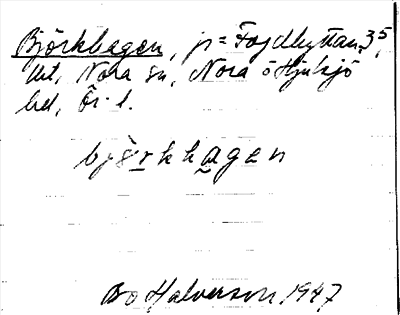 Björkhagen, p = Fogdhyttan 35,
Nora sn, Nora o Hjulsjö
bd, Ör. l.
björkhagen
Bo Halverson 1947